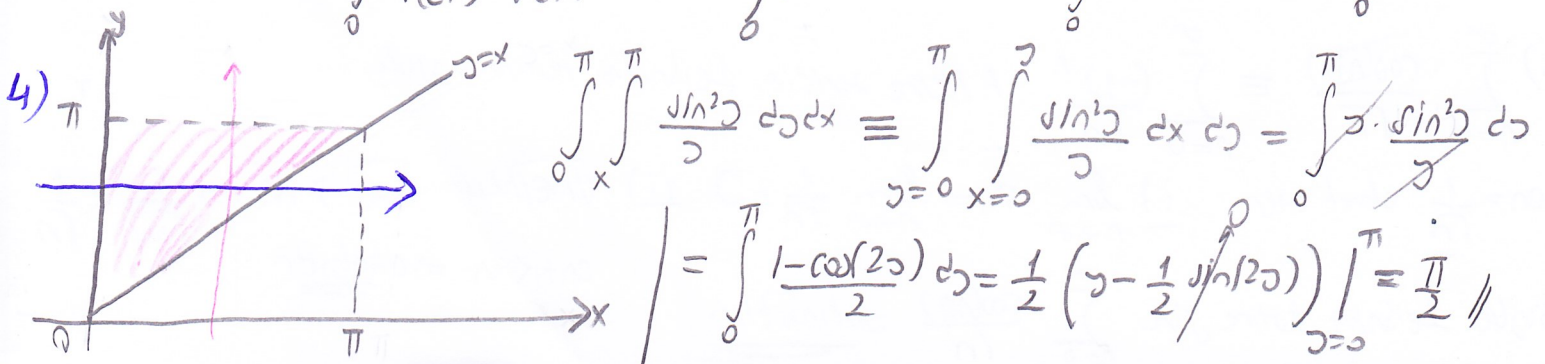 4)
y
π
y=x
0
π
x
∫_0^π ∫_x^π (sin²y)/y dy dx ≡ ∫_{y=0}^π ∫_{x=0}^y (sin²y)/y dx dy = ∫_0^π y · (sin²y)/y dy
= ∫_0^π (1-cos(2y))/2 dy = 1/2 (y - 1/2 sin(2y)) |_{y=0}^π = π/2 //
0